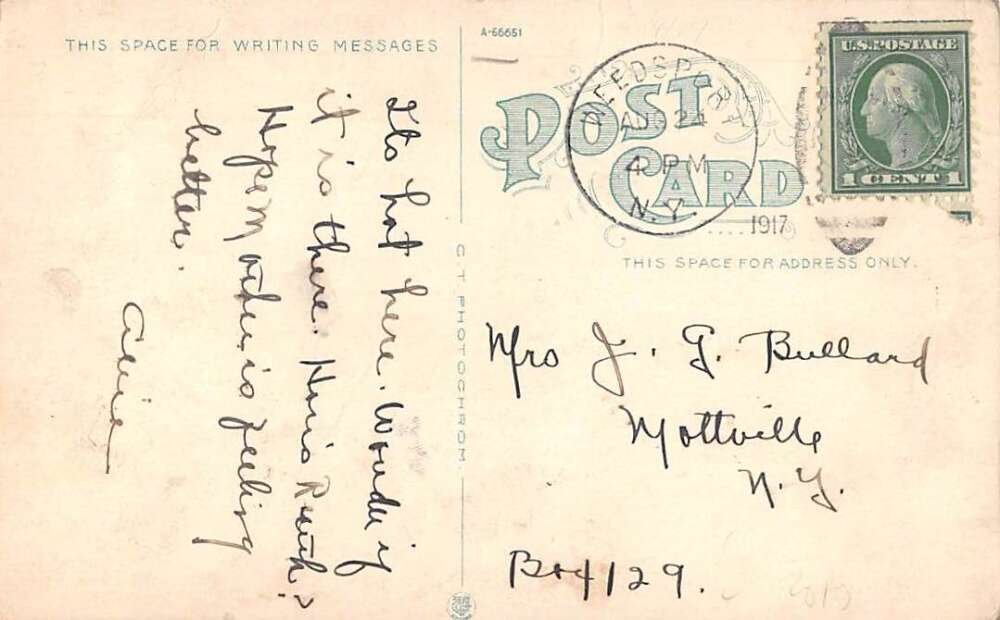 THIS SPACE FOR WRITING MESSAGES
Its hot here. Wonder if
it is there. How is Ruth?
Hope Mother is feeling
better.
Alvia
C T PHOTOCHROM
A-66651
POST
CARD
WEEDSPORT
AUG 24
4 PM
N.Y.
1917
U.S. POSTAGE
1 CENT 1
THIS SPACE FOR ADDRESS ONLY.
Mrs J. G. Bullard
Mottville
N.Y.
Box 129.